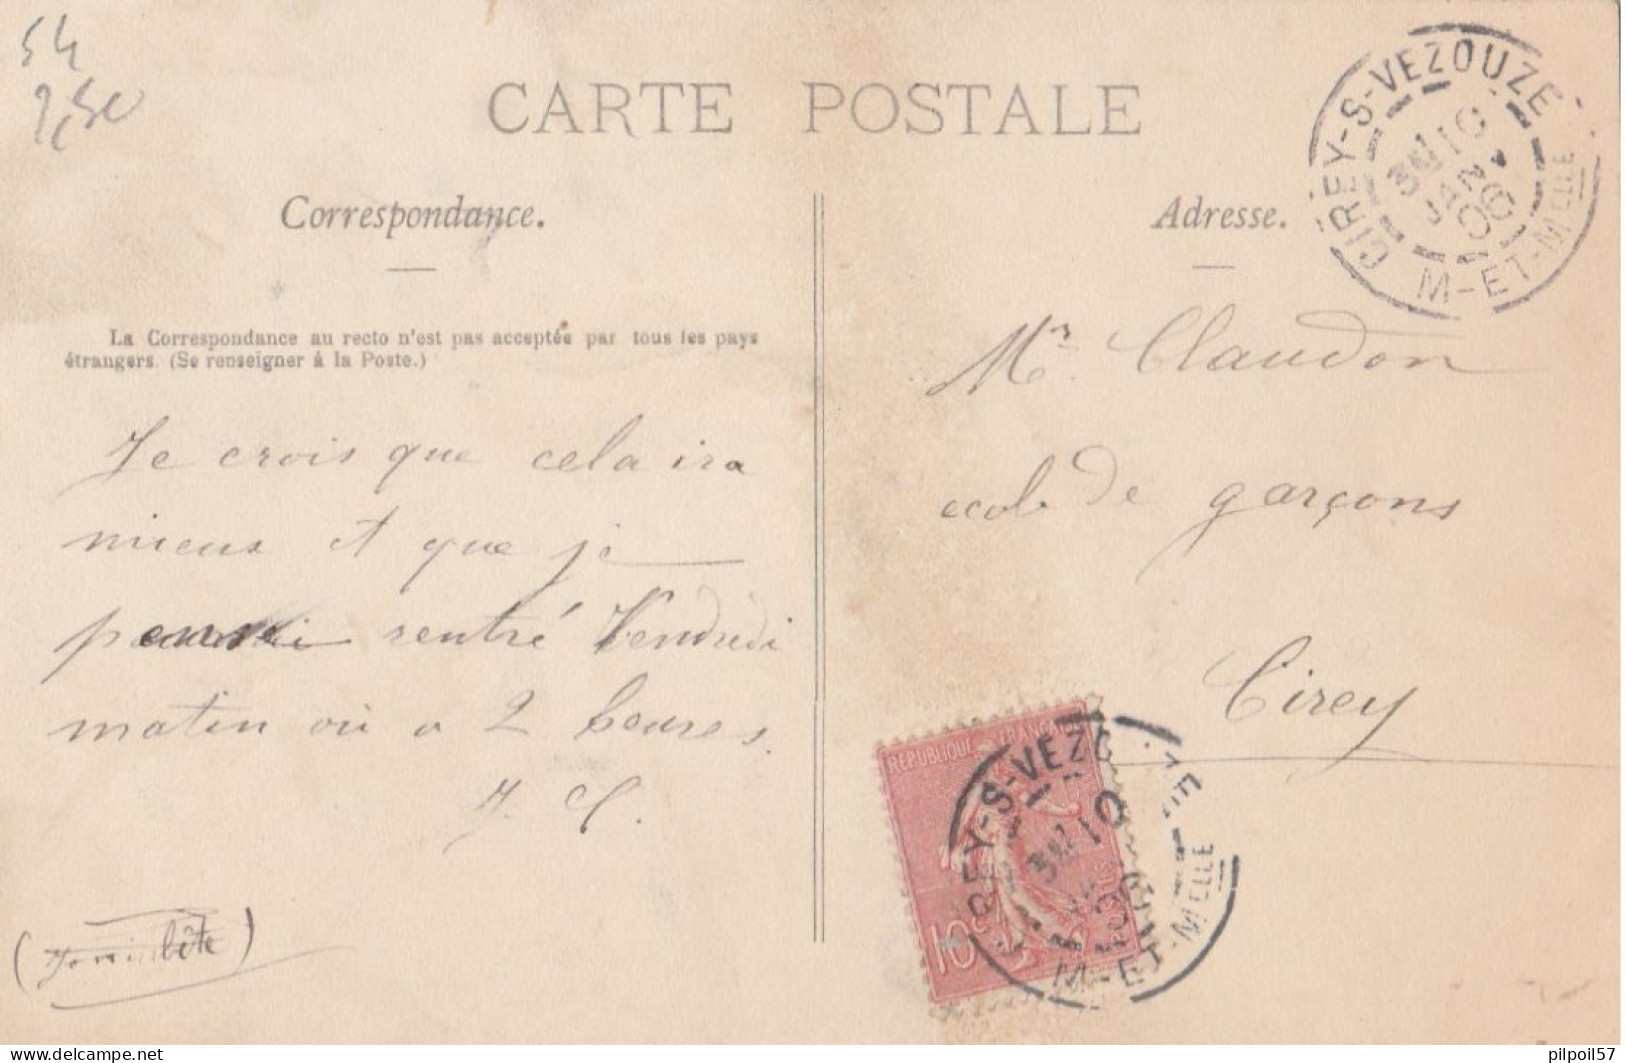 54
2,50
CARTE POSTALE
Correspondance.
La Correspondance au recto n'est pas acceptée par tous les pays
étrangers. (Se renseigner à la Poste.)
Je crois que cela ira
mieux et que je
rentré Vendredi
matin ou a 2 heures.
J. C.
( bête )
Adresse.
Mr. Claudon
école de garçons
Cirey
CIREY-S-VEZOUZE
10
JANV
06
M-ET-MELLE
REPUBLIQUE FRANÇAISE
10c
POSTES
REY-S-VEZ ZE
10
06
M-ET-MELLE
delcampe.net
pilpoil57